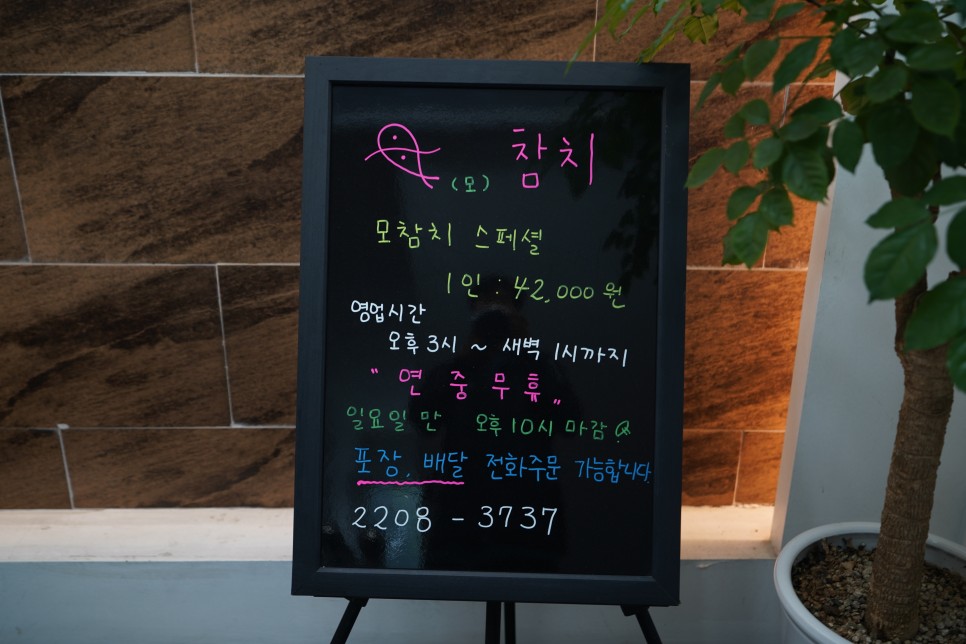 (모) 참치
모참치 스페셜
1인 : 42,000원
영업시간
오후 3시 ~ 새벽 1시까지
"연중무휴„
일요일만 오후 10시 마감
포장, 배달 전화주문 가능합니다.
2208 - 3737